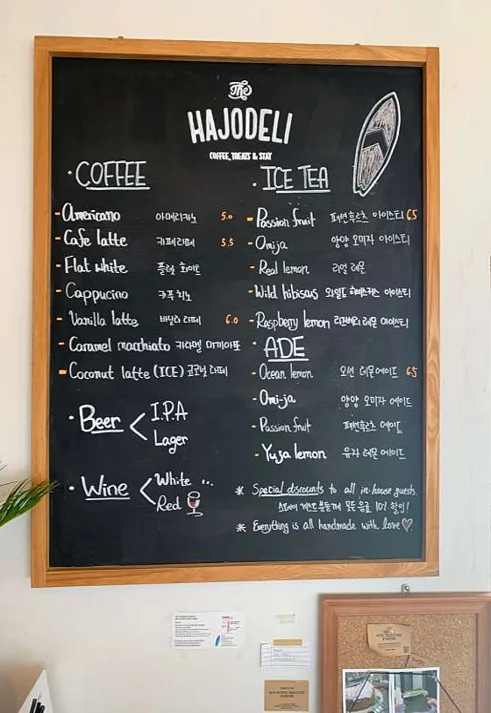 The
HAJODELI
COFFEE, TREATS & STAY
· COFFEE
- Americano 아메리카노 5.0
- Cafe latte 카페라떼 5.5
- Flat white 플랫 화이트
- Cappucino 카푸치노
- Vanilla latte 바닐라 라떼 6.0
- Caramel macchiato 카라멜 마끼아또
- Coconut latte (ICE) 코코넛 라떼
· Beer < I.P.A
Lager
· Wine < White ...
Red
· ICE TEA
- Passion fruit 패션후르츠 아이스티 6.5
- Omija 앙앙 오미자 아이스티
- Real lemon 리얼 레몬
- Wild hibiscus 와일드 히비스커스 아이스티
- Raspberry lemon 라즈베리 레몬 아이스티
· ADE
- Ocean lemon 오션 레몬에이드 6.5
- Omi-ja 앙앙 오미자 에이드
- Passion fruit 패션후르츠 에이드
- Yuja lemon 유자 레몬 에이드
* Special discounts to all in-house guests.
스테이 게스트분들께 모든 음료 10% 할인!
* Everything is all handmade with love♡